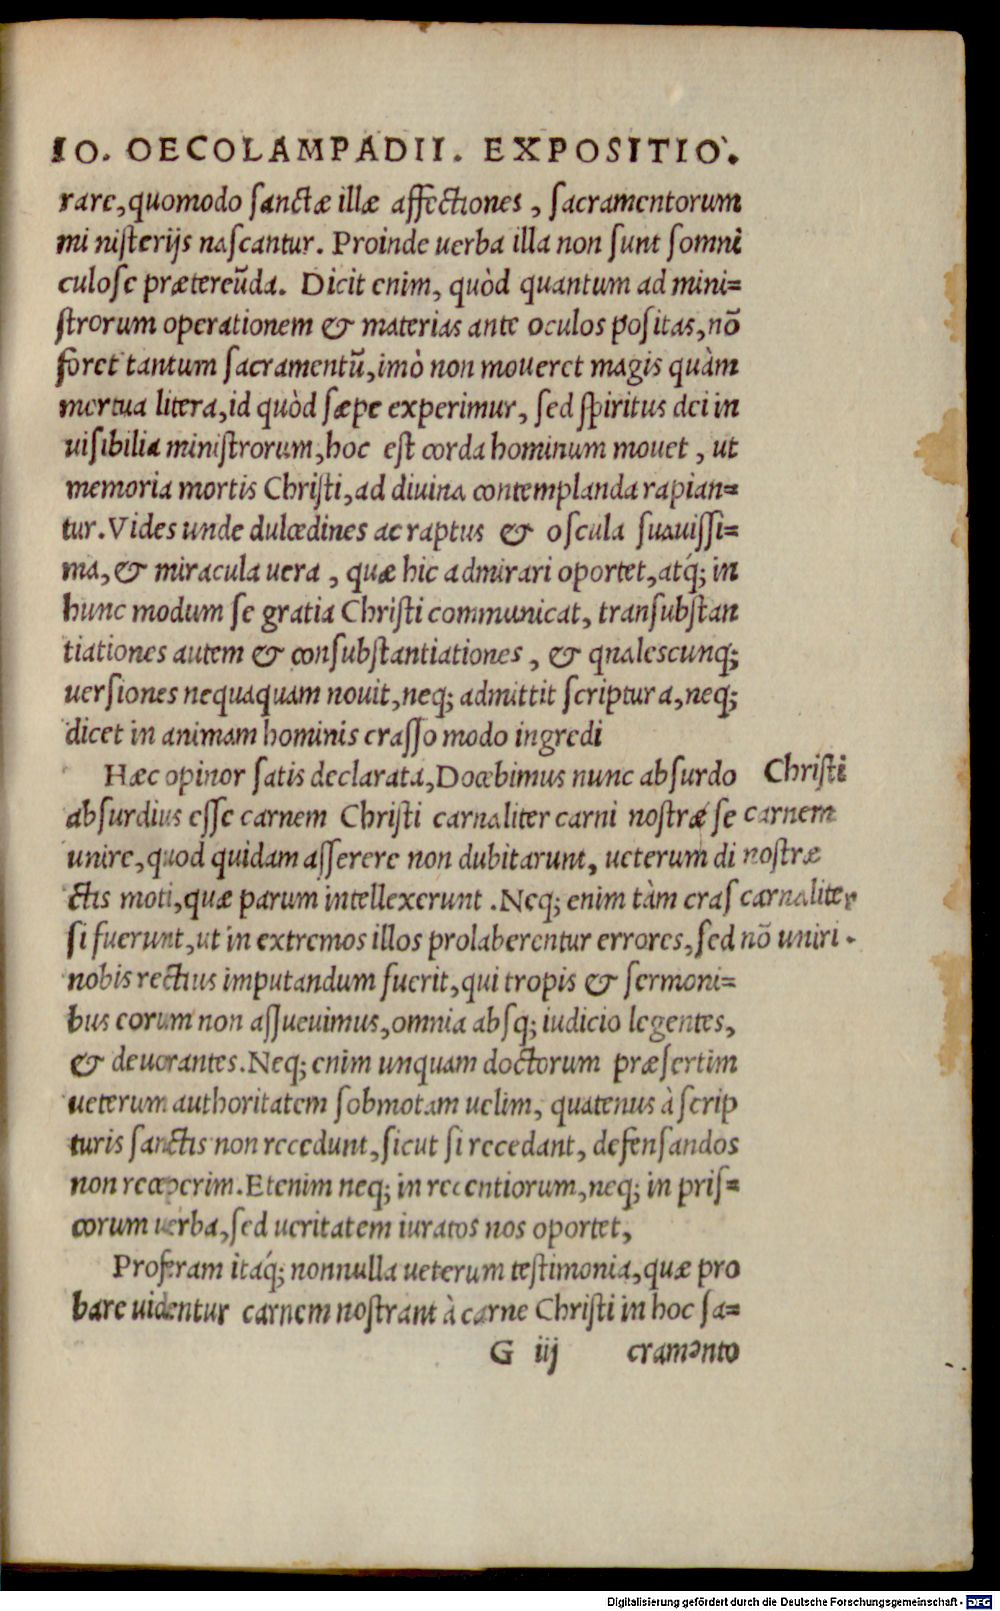 IO. OECOLAMPADII. EXPOSITIO.
rare, quomodo sanctæ illæ affectiones, sacramentorum
mi nisterijs nascantur. Proinde uerba illa non sunt somni
culose prætereūda. Dicit enim, quòd quantum ad mini=
strorum operationem & materias ante oculos positas, nō
foret tantum sacramentū, imò non moueret magis quàm
mortua litera, id quòd sæpe experimur, sed spiritus dei in
uisibilia ministrorum, hoc est corda hominum mouet, ut
memoria mortis Christi, ad diuina contemplanda rapian=
tur. Vides unde dulcedines ac raptus & oscula suauissi=
ma, & miracula uera, quæ hic admirari oportet, atq́; in
hunc modum se gratia Christi communicat, transubstan
tiationes autem & consubstantiationes, & qnalescunq;
uersiones nequaquam nouit, neq; admittit scriptura, neq;
dicet in animam hominis crasso modo ingredi
Hæc opinor satis declarata, Docebimus nunc absurdo
absurdius esse carnem Christi carnaliter carni nostræ se
unire, quod quidam asserere non dubitarunt, ueterum di
ctis moti, quæ parum intellexerunt. Neq; enim tàm cras
si fuerunt, ut in extremos illos prolaberentur errores, sed
nobis rectius imputandum fuerit, qui tropis & sermoni=
bus eorum non assueuimus, omnia absq; iudicio legentes,
& deuorantes. Neq; enim unquam doctorum præsertim
ueterum authoritatem sobmotam uelim, quatenus à scrip
turis sanctis non recedunt, sicut si recedant, defensandos
non receperim. Etenim neq; in recentiorum, neq; in pris=
corum uerba, sed ueritatem iuratos nos oportet,
Proferam itáq; nonnulla ueterum testimonia, quæ pro
bare uidentur carnem nostrant à carne Christi in hoc sa=
G iij cramento
Christi
carnem
nostræ
carnaliter
nō uniri.
Digitalisierung gefördert durch die Deutsche Forschungsgemeinschaft - DFG